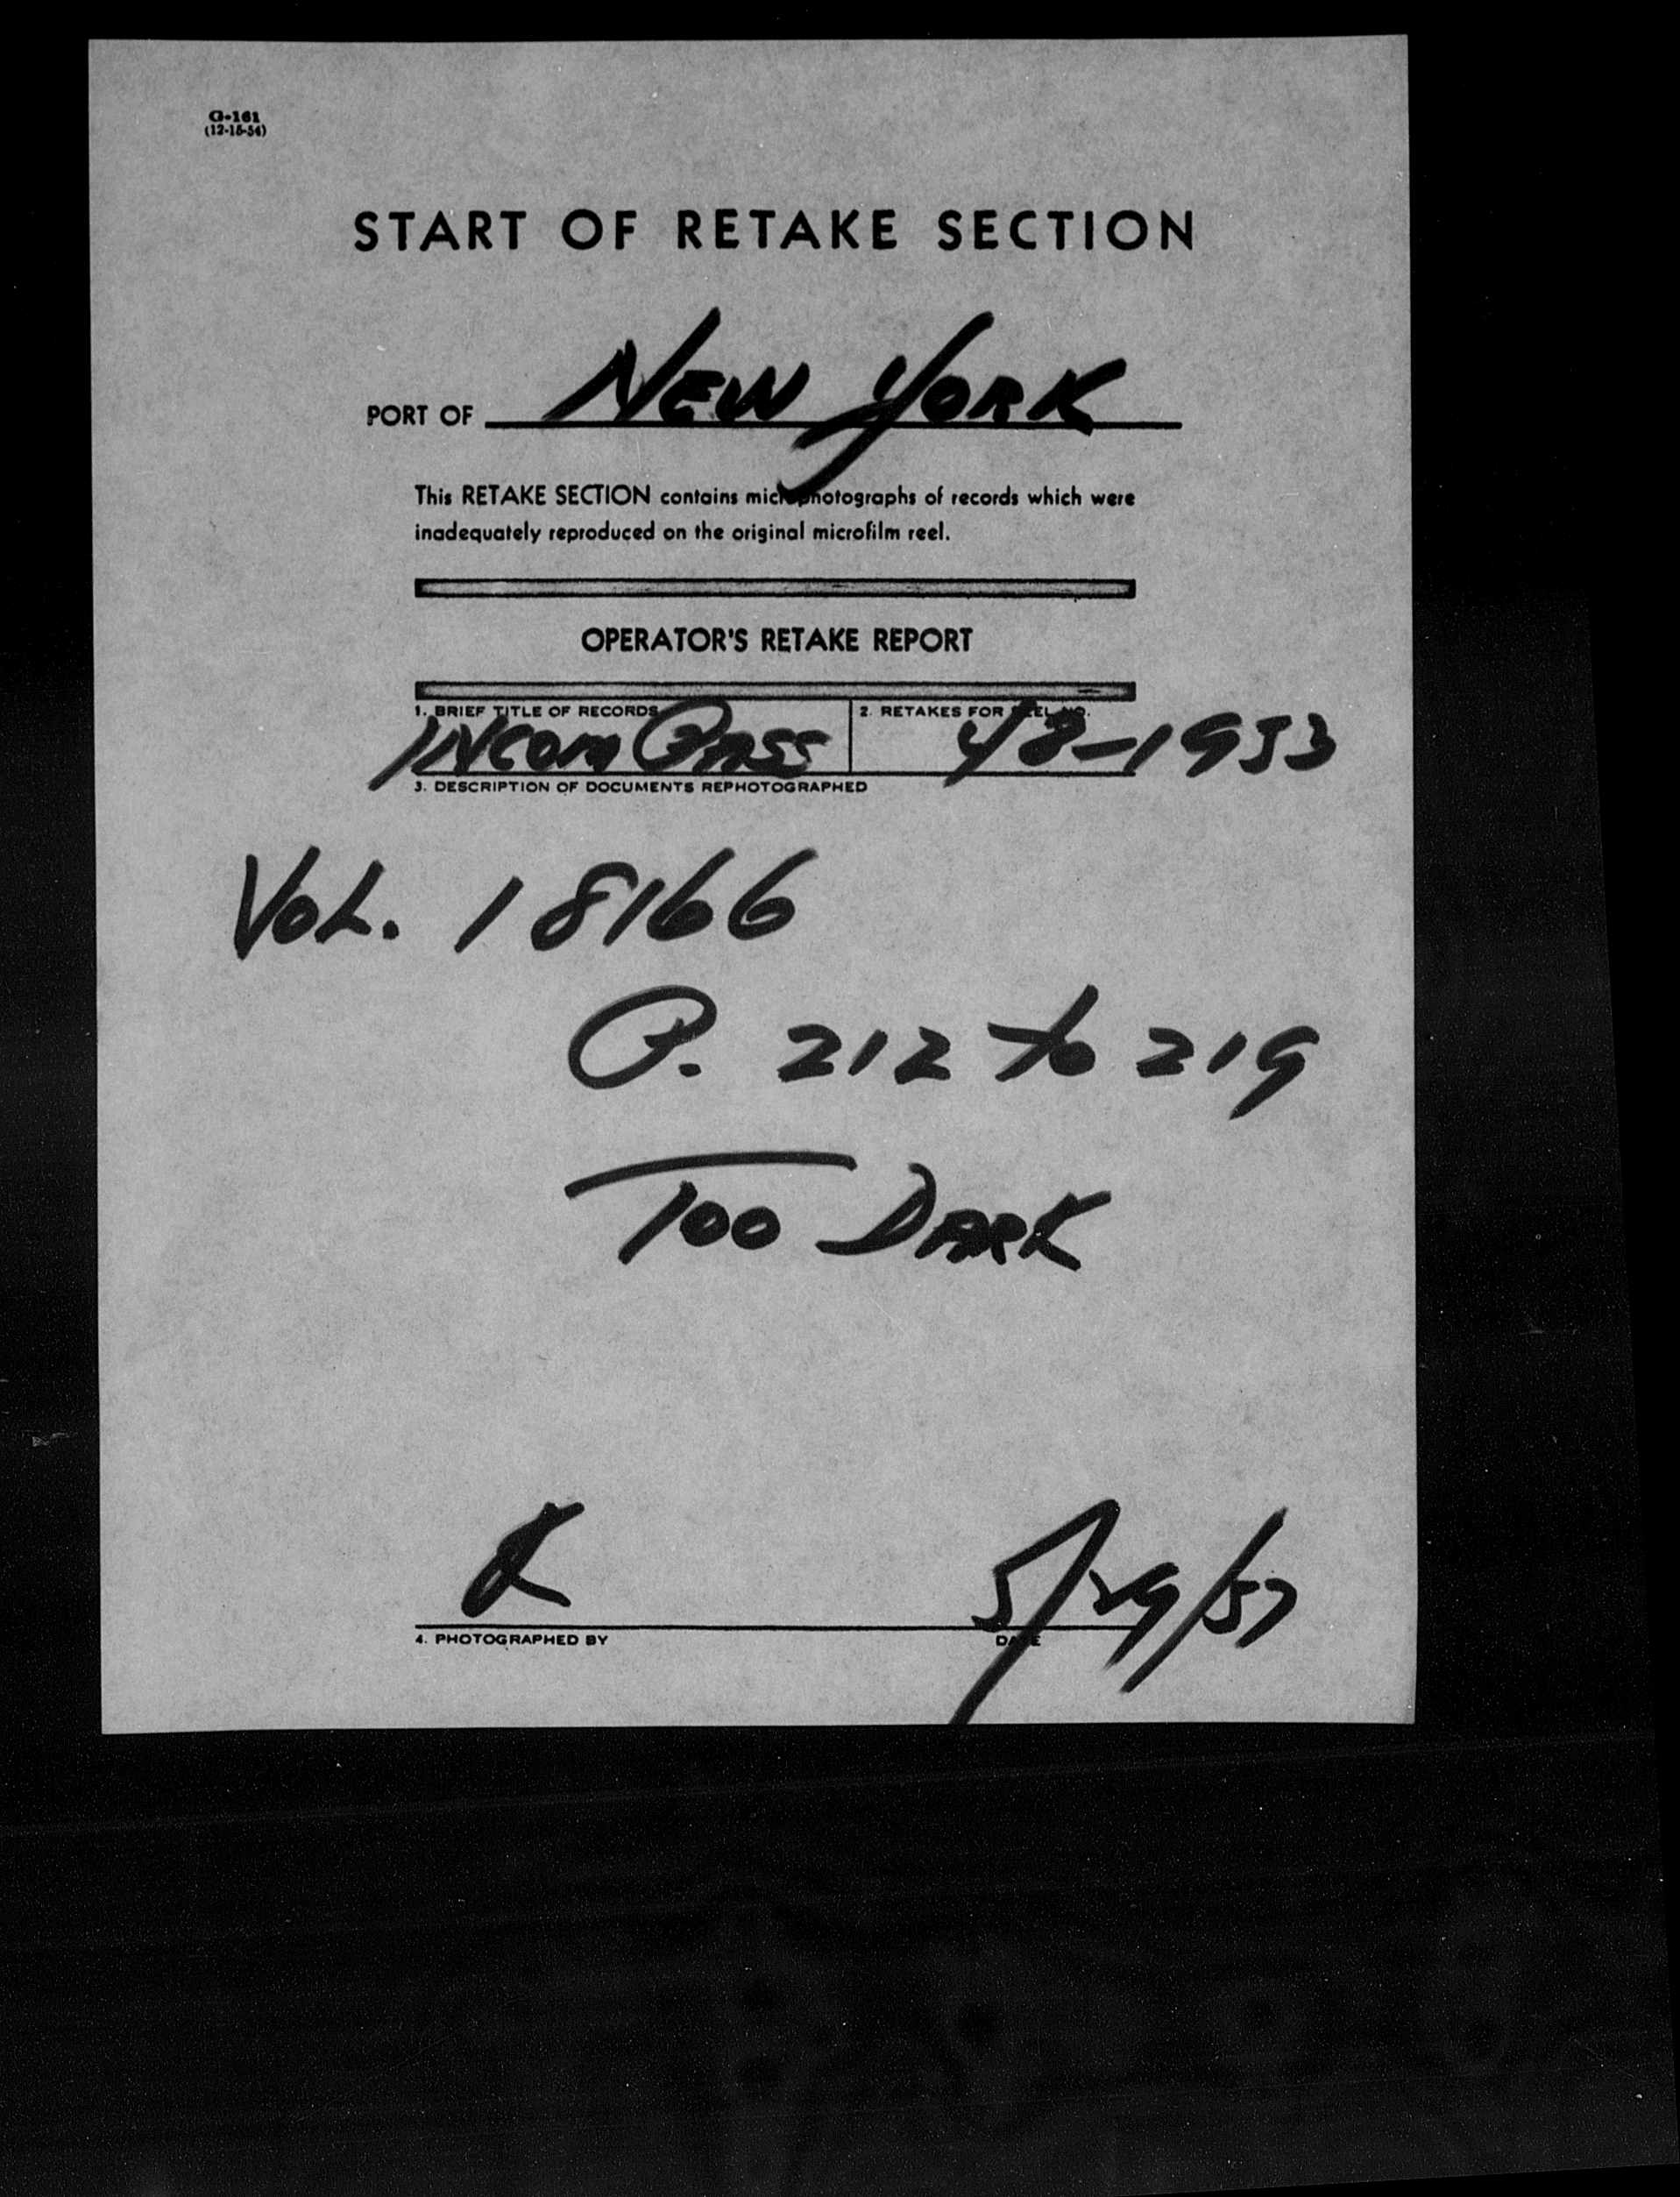 G-161
(12-15-54)
START OF RETAKE SECTION
PORT OF NEW YORK
This RETAKE SECTION contains microphotographs of records which were
inadequately reproduced on the original microfilm reel.
OPERATOR'S RETAKE REPORT
1. BRIEF TITLE OF RECORDS 2. RETAKES FOR REEL NO.
INCOM PASS 48-1953
3. DESCRIPTION OF DOCUMENTS REPHOTOGRAPHED
VOL. 18166
P. 212 to 219
TOO DARK
5/29/57
4. PHOTOGRAPHED BY DATE